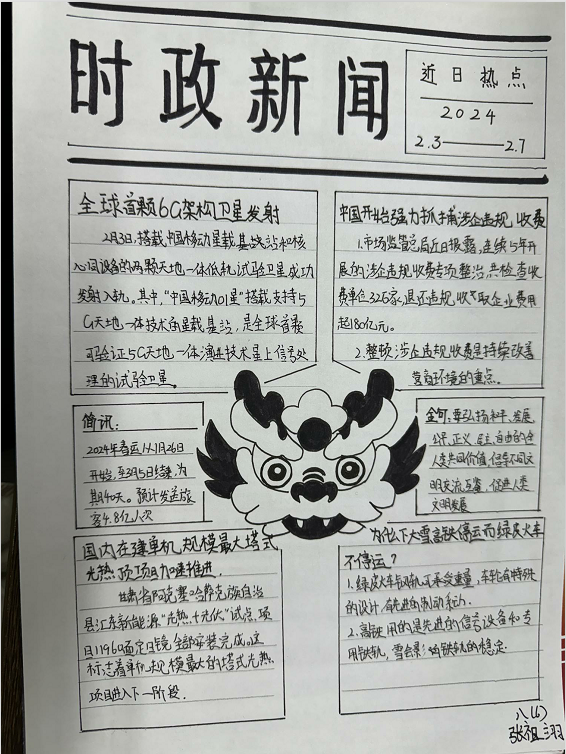 时政新闻
近日热点
2024
2.3——2.7
全球首颗6G架构卫星发射
2月3日,搭载中国移动星载基站和核
心网设备的两颗天地一体低轨试验卫星成功
发射入轨。其中,“中国移动01星”搭载支持5
G天地一体技术的星载基站,是全球首颗
可验证5G天地一体演进技术星上信号处
理的试验卫星。
中国开始强力抓捕涉企违规收费
1.市场监管总局近日披露,连续5年开
展的涉企违规收费专项整治,共检查收
费单位32.6家,退还违规收取企业费用
超180亿元。
2.整顿涉企违规收费是持续改善
营商环境的重点。
简讯:
2024年春运从1月26日
开始,至3月5日结束,为
期40天。预计发送旅
客4.8亿人次
金句:要弘扬和平、发展、
公平、正义、民主、自由的全
人类共同价值,倡导不同文
明交流互鉴,促进人类
文明发展
国内在建单机规模最大塔式
光热项目加速推进
甘肃省阿克塞哈萨克族自治
县汇东新能源“光热+光伏”试点项
目11960面定日镜全部安装完成。这
标志着单机规模最大的塔式光热
项目进入下一阶段.
为什么下大雪高铁停运而绿皮火车
不停运?
1.绿皮火车钢轨可承受重量,车轮有特殊
的设计,有先进的制动能力.
2.高铁用的是先进的信号设备和专
用铁轨,雪会影响铁轨的稳定.
八(6)
张祖羽